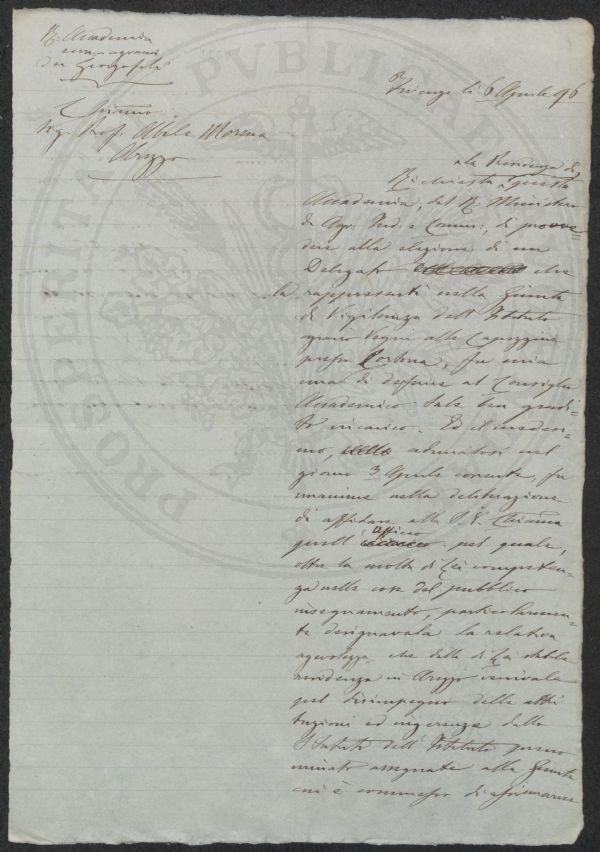 R. Accademia
economico agraria
dei Georgofili
Firenze li 6 Aprile 96
Chiarmo
Sig. Prof. Abele Morena
Arezzo
alla Presidenza di
Richiesta questa
Accademia, dal R. Ministero
di Agr. Ind. e Comm., di provve=
dere alla elezione di un
Delegato che
la rappresenti nella Giunta
di Vigilanza dell'Istituto
agrario Vegni alle Capezzine
presso Cortona, fu mia
cura di deferire al Consiglio
Accademico tale
incarico. Ed il medesi=
mo, adunatosi nel
giorno 3 Aprile corrente, fu
unanime nella deliberazione
di affidare alla S. V. Chiarma
quell'ufficio pel quale,
oltre la molta di Lei competen=
za nelle cose del pubblico
insegnamento, particolarmen=
te designavala la relativa
agevolezza che dalla di Lei stabile
residenza in Arezzo venivale
pel disimpegno delle attri
buzioni ed ingerenze dallo
Statuto dell'Istituto prenno
minato assegnate alla Giunta
cui è commesso di
PROSPERITATI PUBLICAE